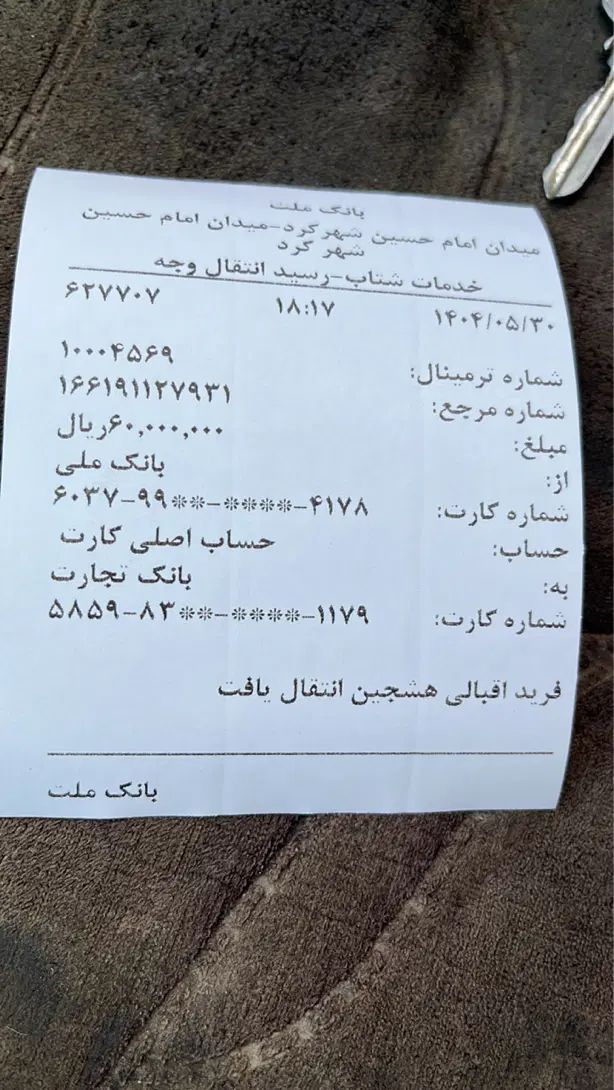 بانک ملت
میدان امام حسین شهرکرد-میدان امام حسین
شهر کرد
خدمات شتاب-رسید انتقال وجه
۱۴۰۴/۰۵/۳۰ ۱۸:۱۷ ۶۲۷۷۰۷
شماره ترمینال: ۱۰۰۰۴۵۶۹
شماره مرجع: ۱۶۶۱۹۱۱۲۷۹۳۱
مبلغ: ۶۰,۰۰۰,۰۰۰ریال
از: بانک ملی
شماره کارت: ۶۰۳۷-۹۹**-****-۴۱۷۸
حساب: حساب اصلی کارت
به: بانک تجارت
شماره کارت: ۵۸۵۹-۸۳**-****-۱۱۷۹
فرید اقبالی هشجین انتقال یافت
بانک ملت